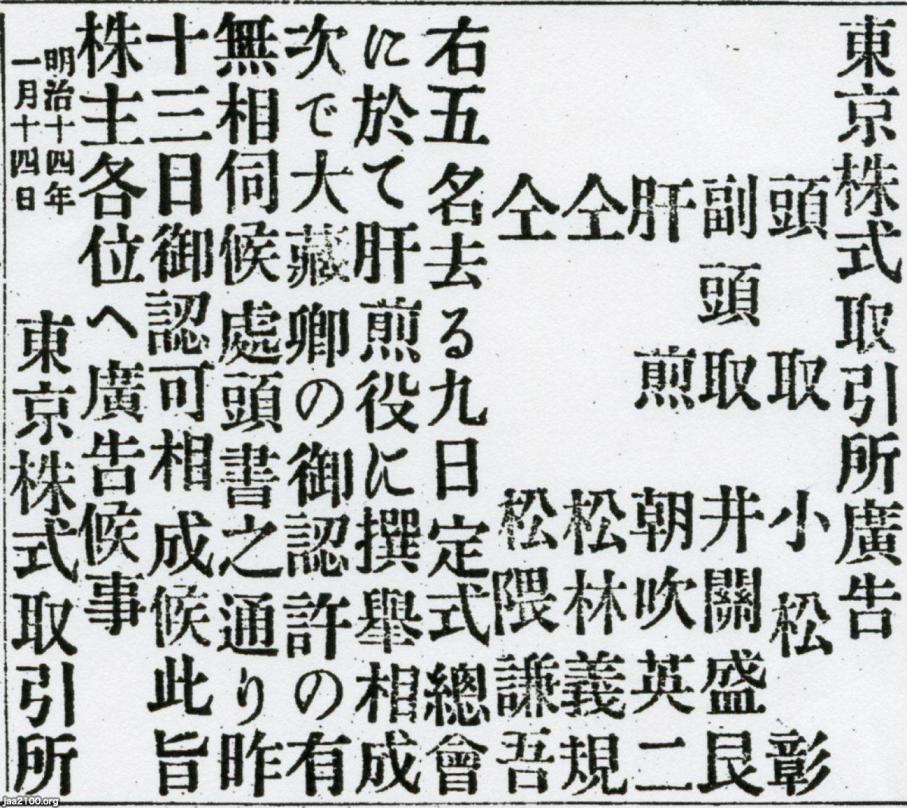 東京株式取引所廣告
頭取 小松彰
副頭取 井關盛艮
肝煎 朝吹英二
仝 松林義規
仝 松隈謙吾
右五名去る九日定式總會
に於て肝煎役に撰擧相成
次で大藏卿の御認許の有
無相伺候處頭書之通り昨
十三日御認可相成候此旨
株主各位へ廣告候事
明治十四年
一月十四日
東京株式取引所
jaa2100.org